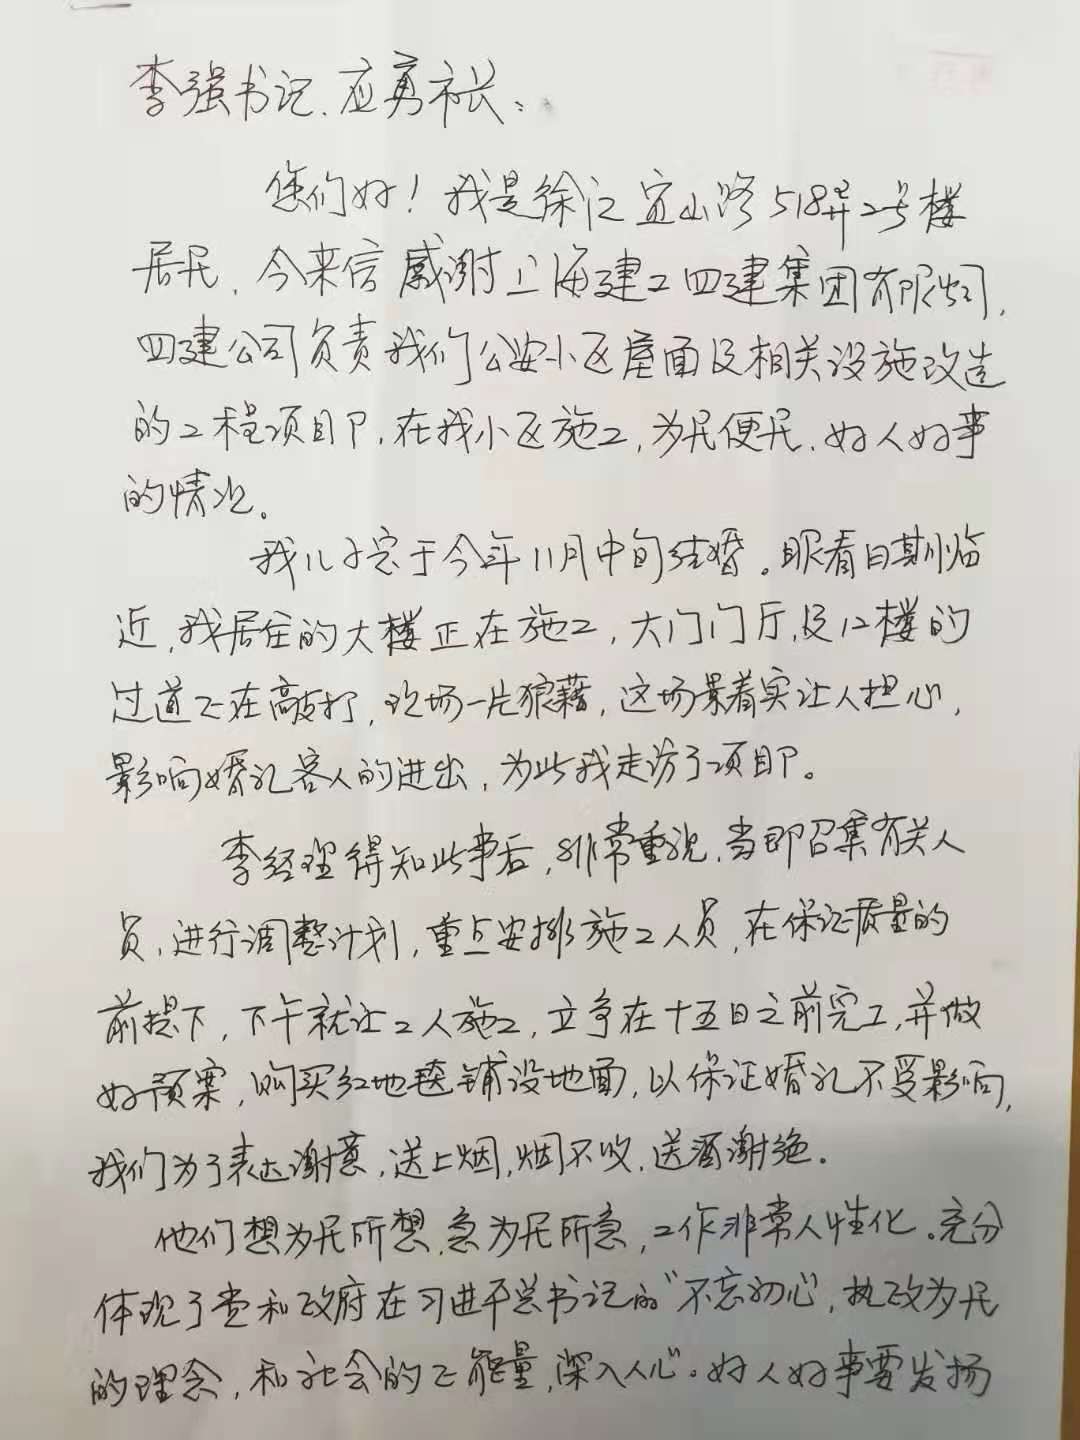 李强书记、应勇市长：
您们好！我是徐汇宜山路518弄2号楼
居民，今来信感谢上海建工四建集团有限公司，
四建公司负责我们公安小区屋面及相关设施改造
的工程项目下，在我小区施工，为民便民，好人好事
的情况。
我儿子定于今年11月中旬结婚。眼看日期临
近，我居住的大楼正在施工，大门门厅，及12楼的
过道正在敲打，现场一片狼藉，这场景着实让人担心，
影响婚礼客人的进出，为此我走访了项目P。
李经理得知此事后，非常重视，当即召集有关人
员，进行调整计划，重点安排施工人员，在保证质量的
前提下，下午就让工人施工，立争在十五日之前完工，并做
好预案，购买红地毯铺设地面，以保证婚礼不受影响，
我们为了表达谢意，送上烟，烟不收，送酒谢绝。
他们想为民所想，急为民所急，工作非常人性化。充分
体现了党和政府在习近平总书记的"不忘初心"，执政为民
的理念，和社会的正能量，深入人心。好人好事要发扬